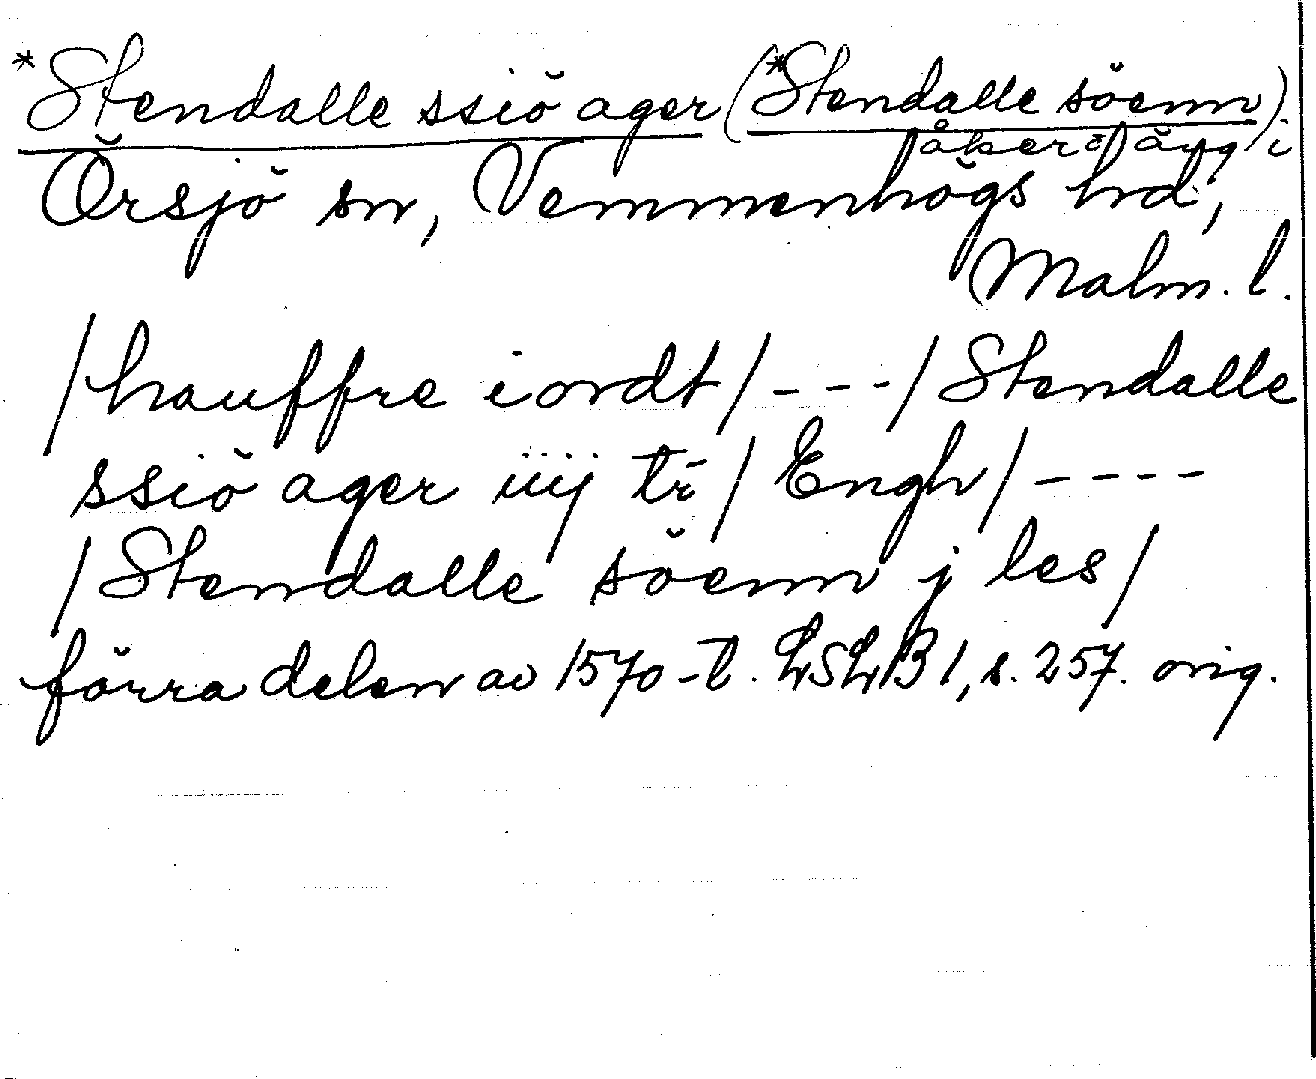 *Stendalle ssiö ager (*Stendalle söenn)
åker o äng i
Örsjö sn, Vemmenhögs hd,
Malm. l.
/hauffre iordt/---/Stendalle
ssiö ager iiij tr̄/Engh/----
/Stendalle söenn j les/
förra delen av 1570-t. LSLB1, s. 257. orig.